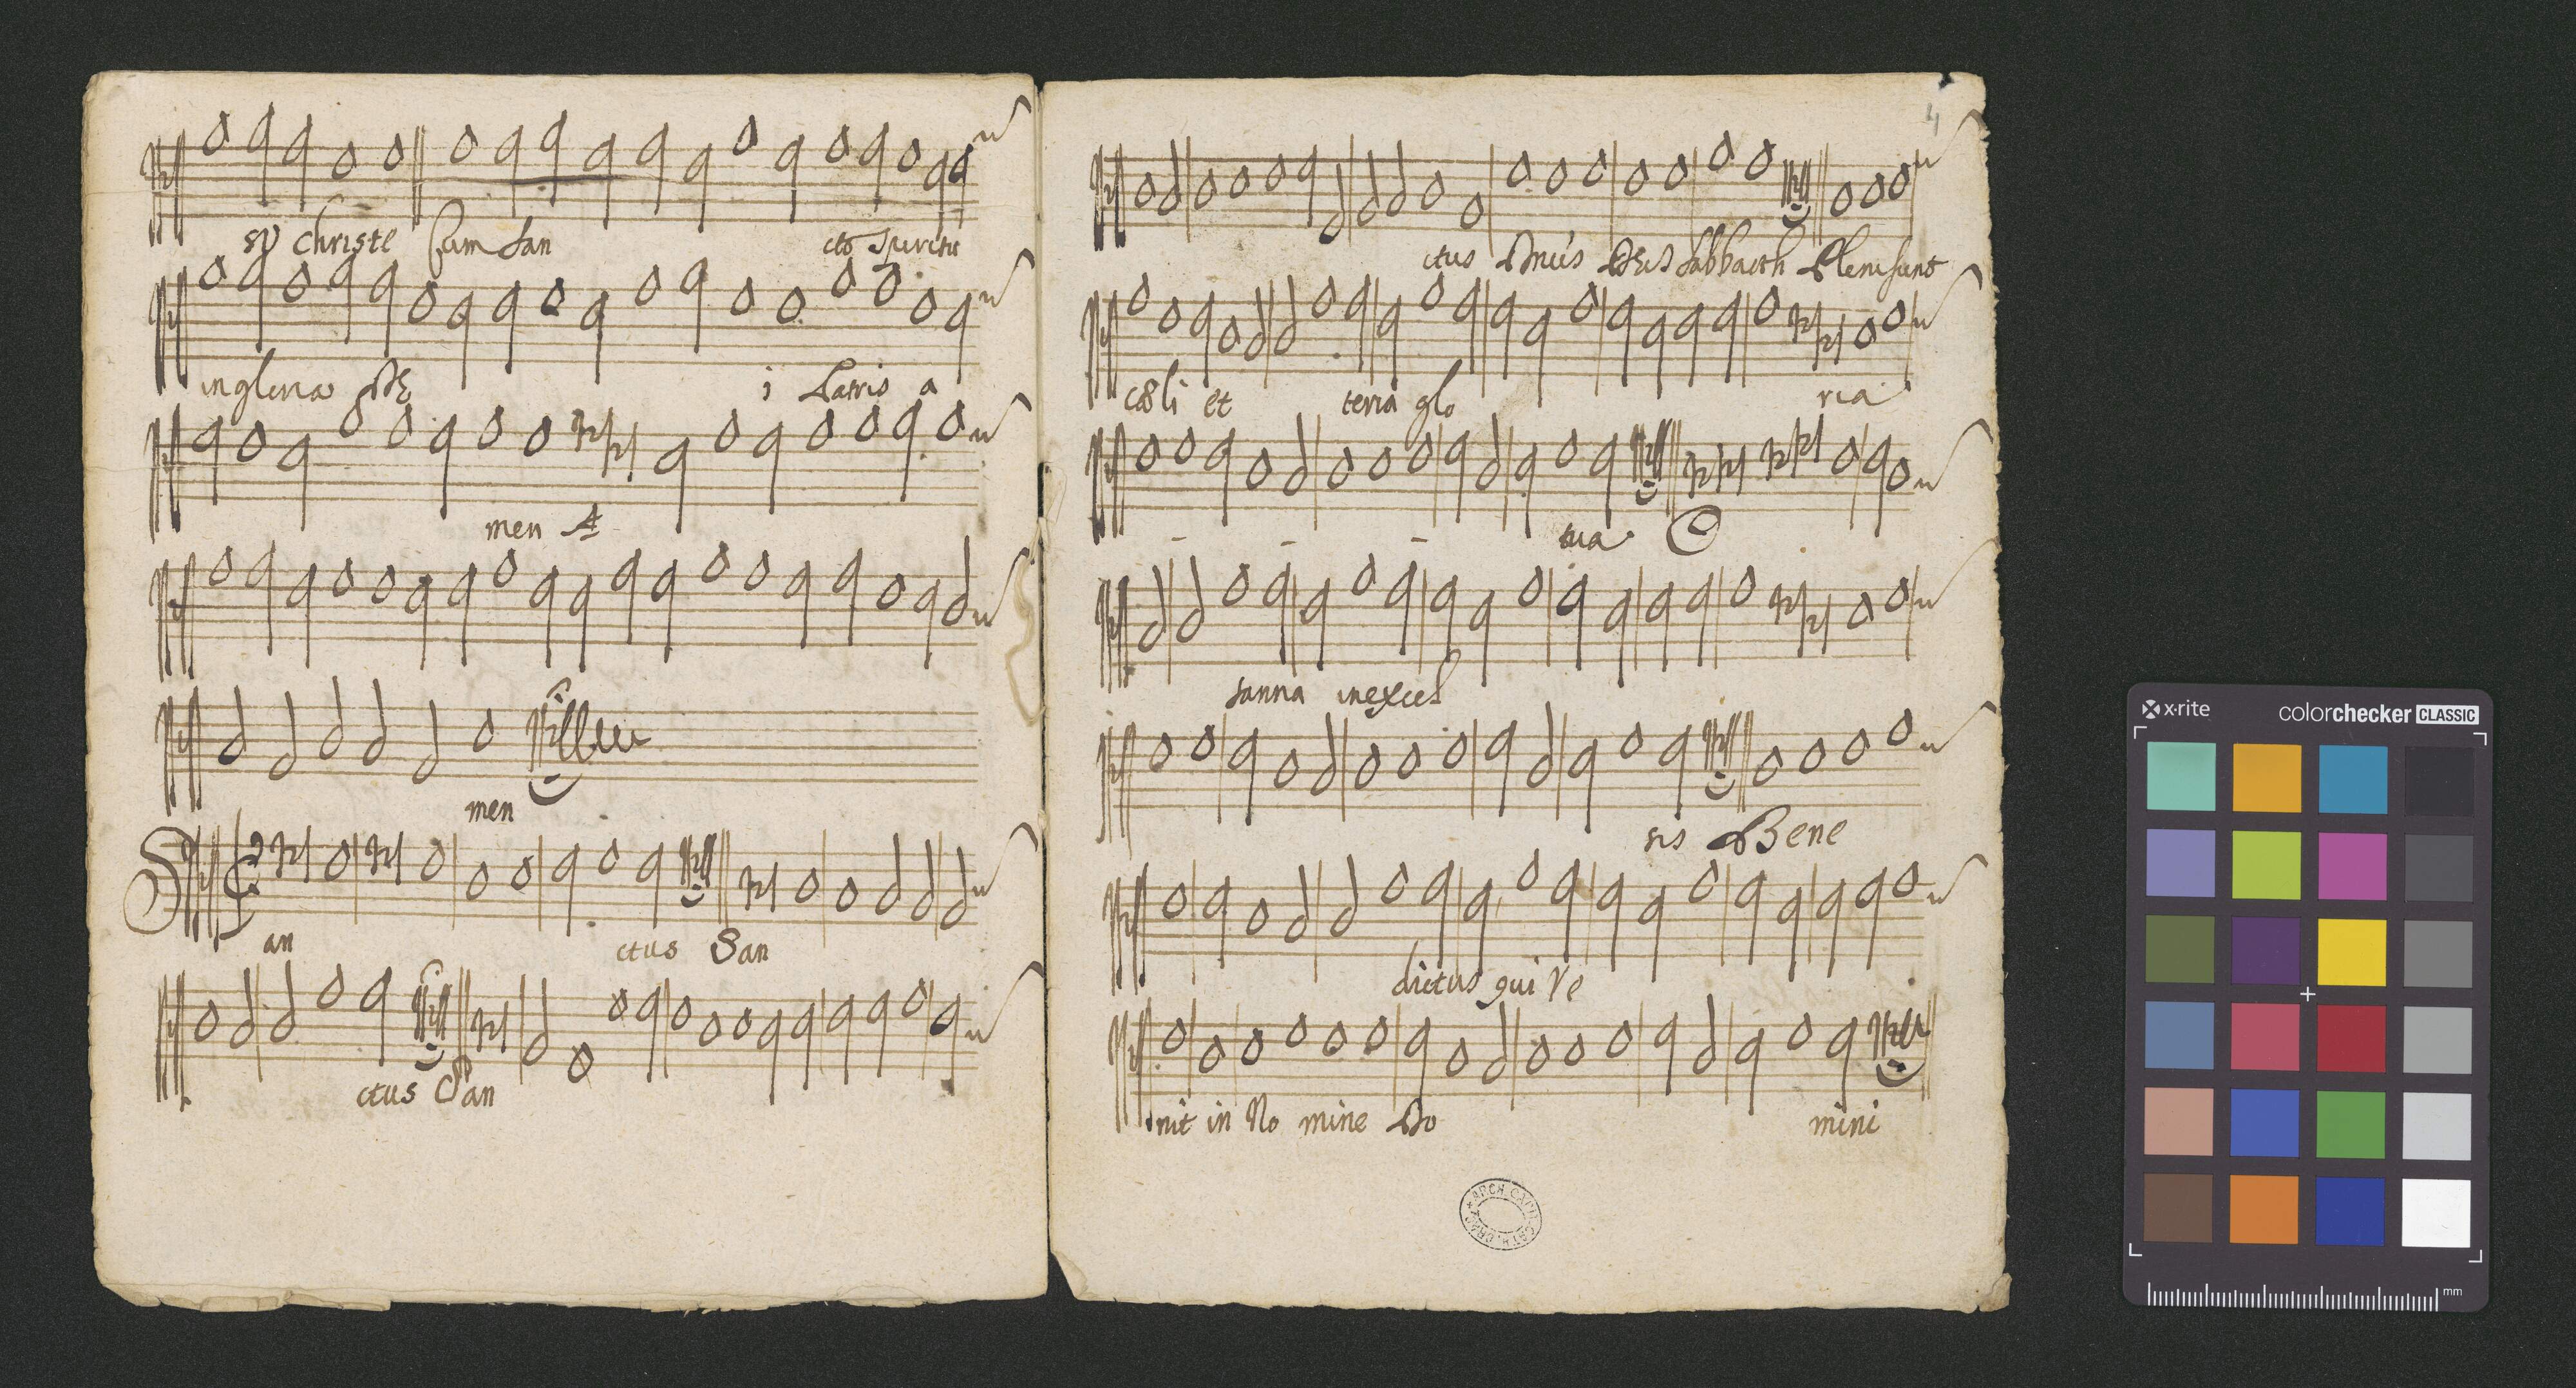 su Christe Cum San cto Spiritu
in gloria DE i Patris a
men A
men
San ctus San
ctus San
4
ctus Dnus DEus Sabbaoth Pleni sunt
cœli et terra glo ria
tua O
sanna in excel
sis Bene
dictus qui Ve
nit in No mine Do mini
ARCH. CAPIT. CATH. CRAC.
x-rite colorchecker CLASSIC
mm